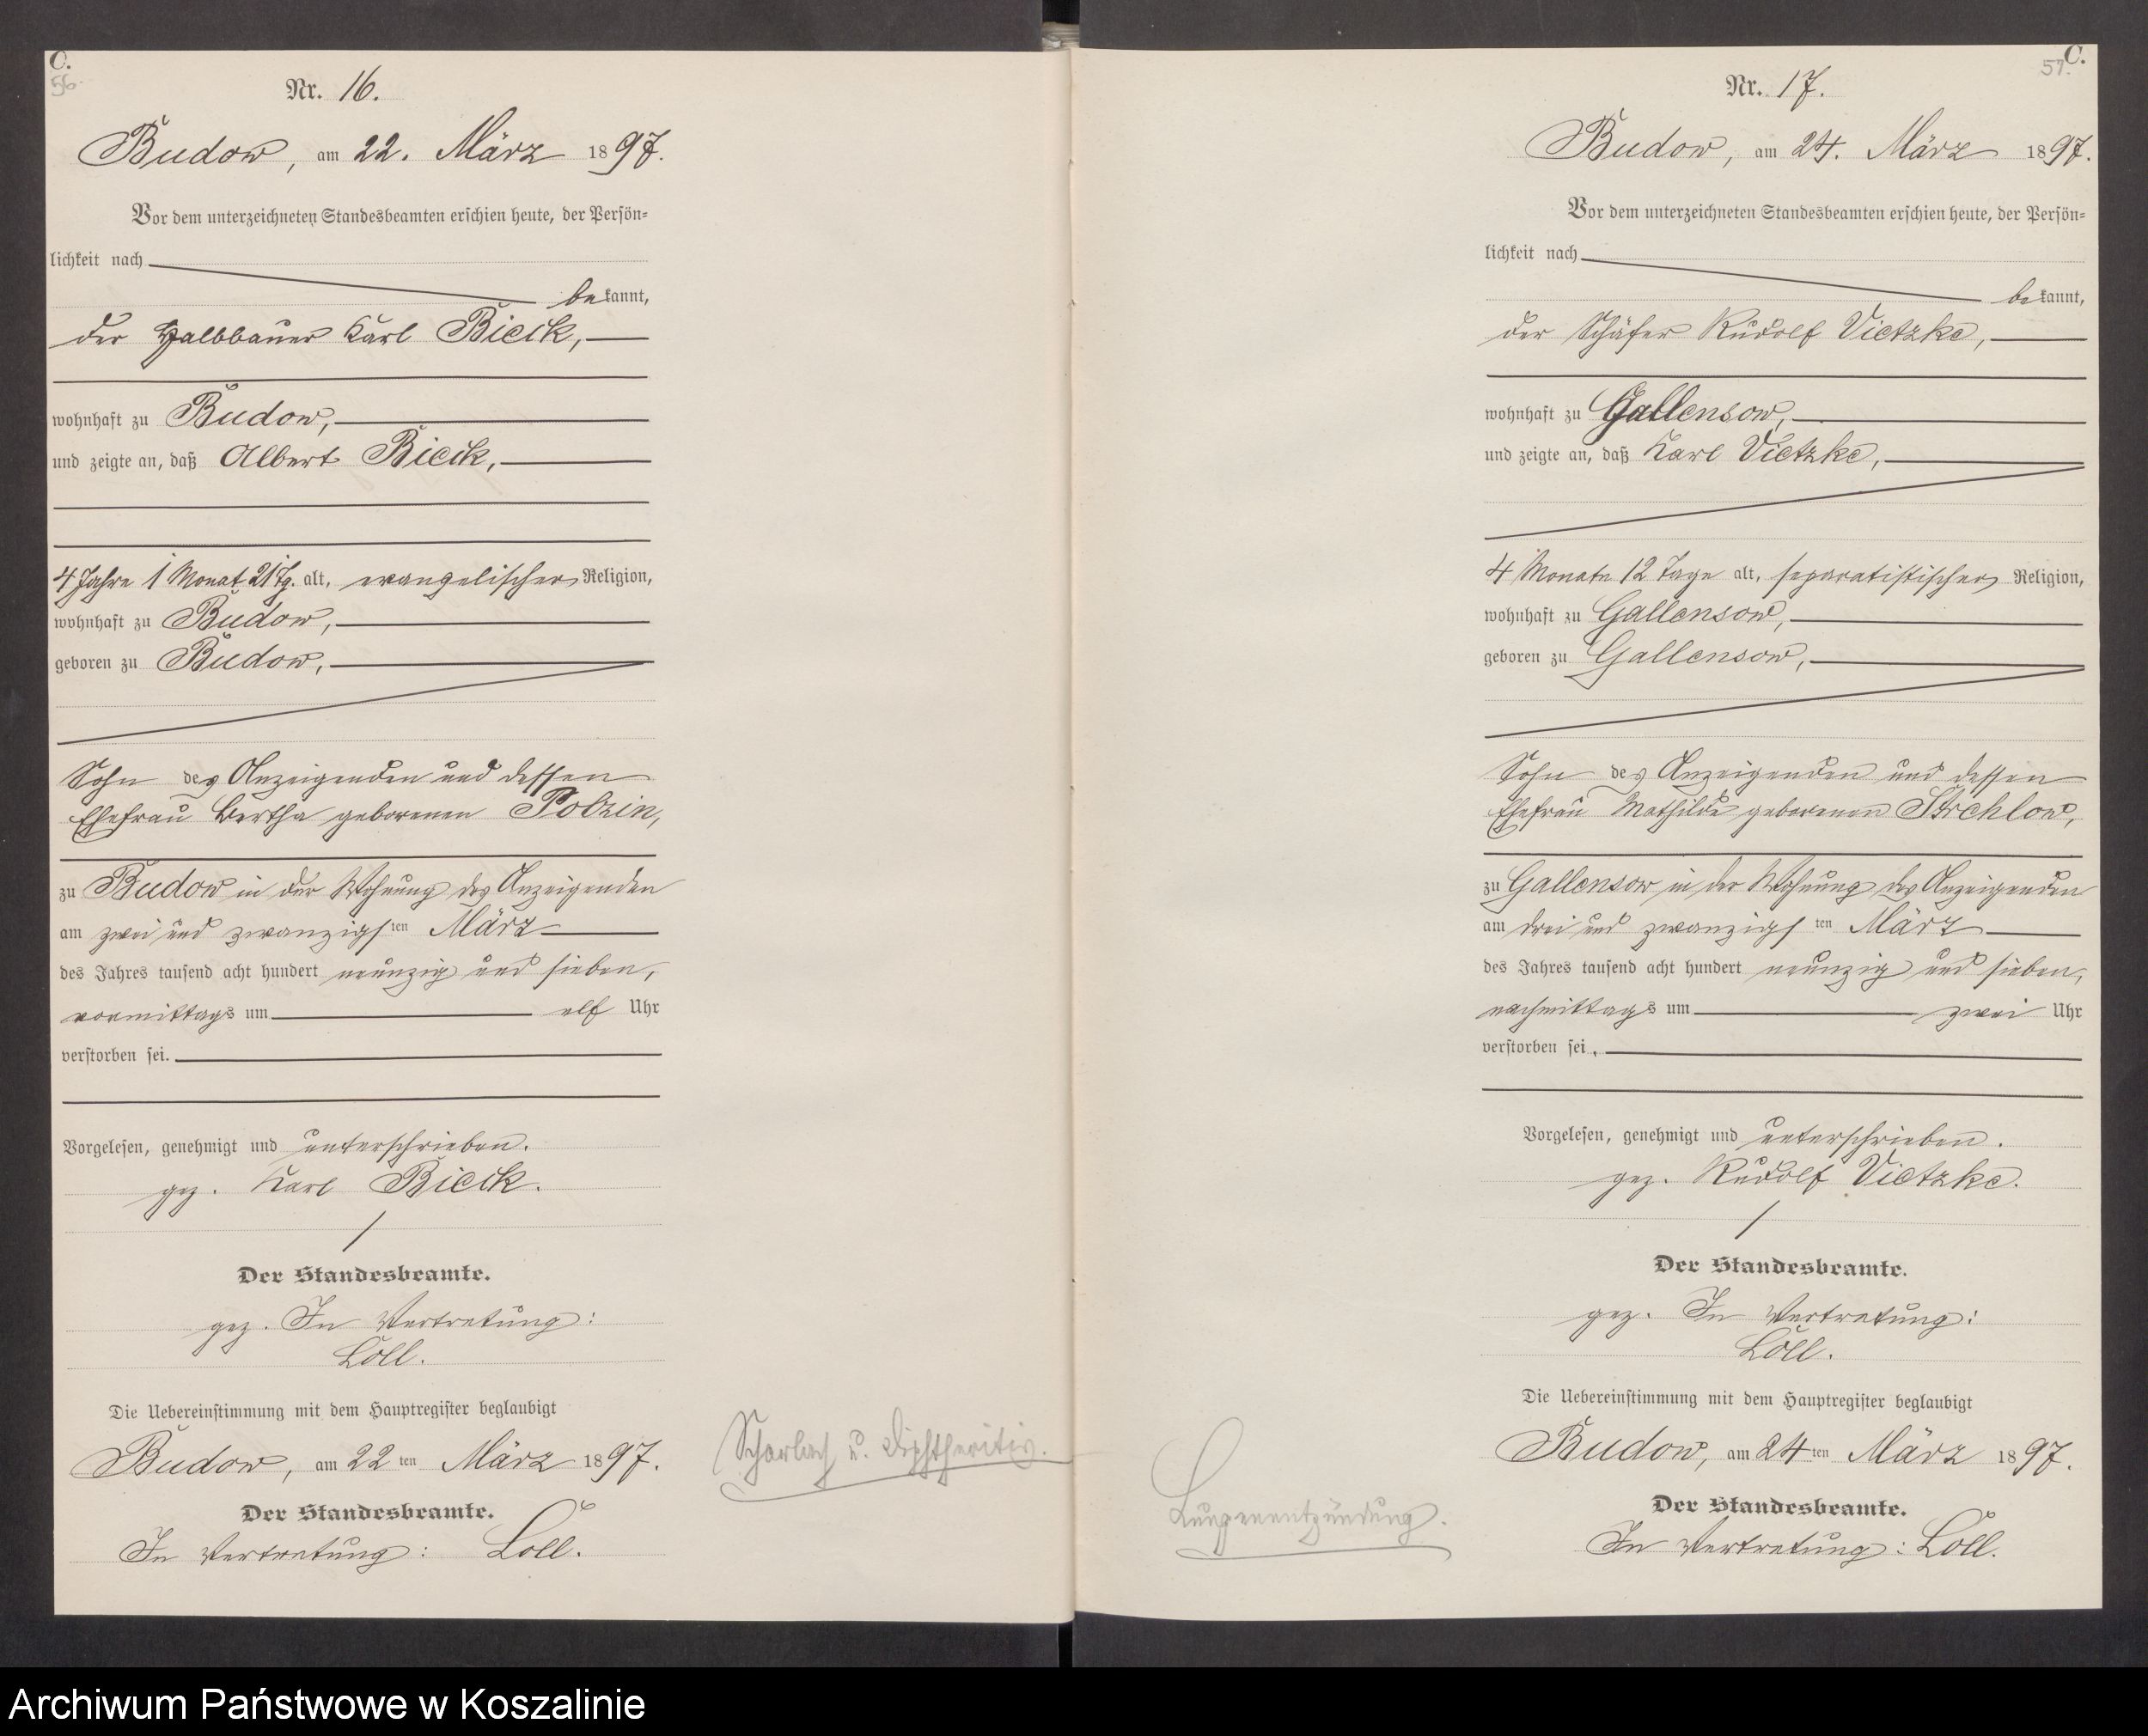 C.
56.
Nr. 16.
Budow, am 22. März 1897.
Vor dem unterzeichneten Standesbeamten erschien heute, der Persön-
lichkeit nach
bekannt,
der Halbbauer Karl Bieck,
wohnhaft zu Budow,
und zeigte an, daß Albert Bieck,
4 Jahre 1 Monat 21 Tg. alt, evangelischer Religion,
wohnhaft zu Budow,
geboren zu Budow,
Sohn des Anzeigenden und dessen
Ehefrau Bertha geborenen Polzin,
zu Budow in der Wohnung des Anzeigenden
am zwei und zwanzigsten März
des Jahres tausend acht hundert neunzig und sieben,
vormittags um elf Uhr
verstorben sei.
Vorgelesen, genehmigt und unterschrieben.
gez. Karl Bieck.
Der Standesbeamte.
gez. In Vertretung:
Löll.
Die Uebereinstimmung mit dem Hauptregister beglaubigt
Budow, am 22ten März 1897.
Der Standesbeamte.
In Vertretung: Löll.
Scharlach u. Diphtheritis.
C.
57.
Nr. 17.
Budow, am 24. März 1897.
Vor dem unterzeichneten Standesbeamten erschien heute, der Persön-
lichkeit nach
bekannt,
der Schäfer Rudolf Vietzke,
wohnhaft zu Gallensow,
und zeigte an, daß Karl Vietzke,
4 Monate 12 Tage alt, separatistischer Religion,
wohnhaft zu Gallensow,
geboren zu Gallensow,
Sohn des Anzeigenden und dessen
Ehefrau Mathilde geborenen Strehlow,
zu Gallensow in der Wohnung des Anzeigenden
am drei und zwanzigsten März
des Jahres tausend acht hundert neunzig und sieben,
nachmittags um zwei Uhr
verstorben sei.
Vorgelesen, genehmigt und unterschrieben.
gez. Rudolf Vietzke.
Der Standesbeamte.
gez. In Vertretung:
Löll.
Die Uebereinstimmung mit dem Hauptregister beglaubigt
Budow, am 24ten März 1897.
Der Standesbeamte.
In Vertretung: Löll.
Lungenentzündung.
Archiwum Państwowe w Koszalinie